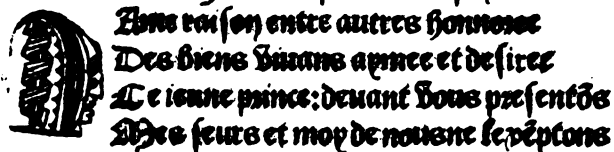 Dame raison entre autres honnoree
Des biens viuans aymee et desiree
Ce ieune prince: deuant vous presentõs
Mes seurs et moy de nous ne lexẽptons